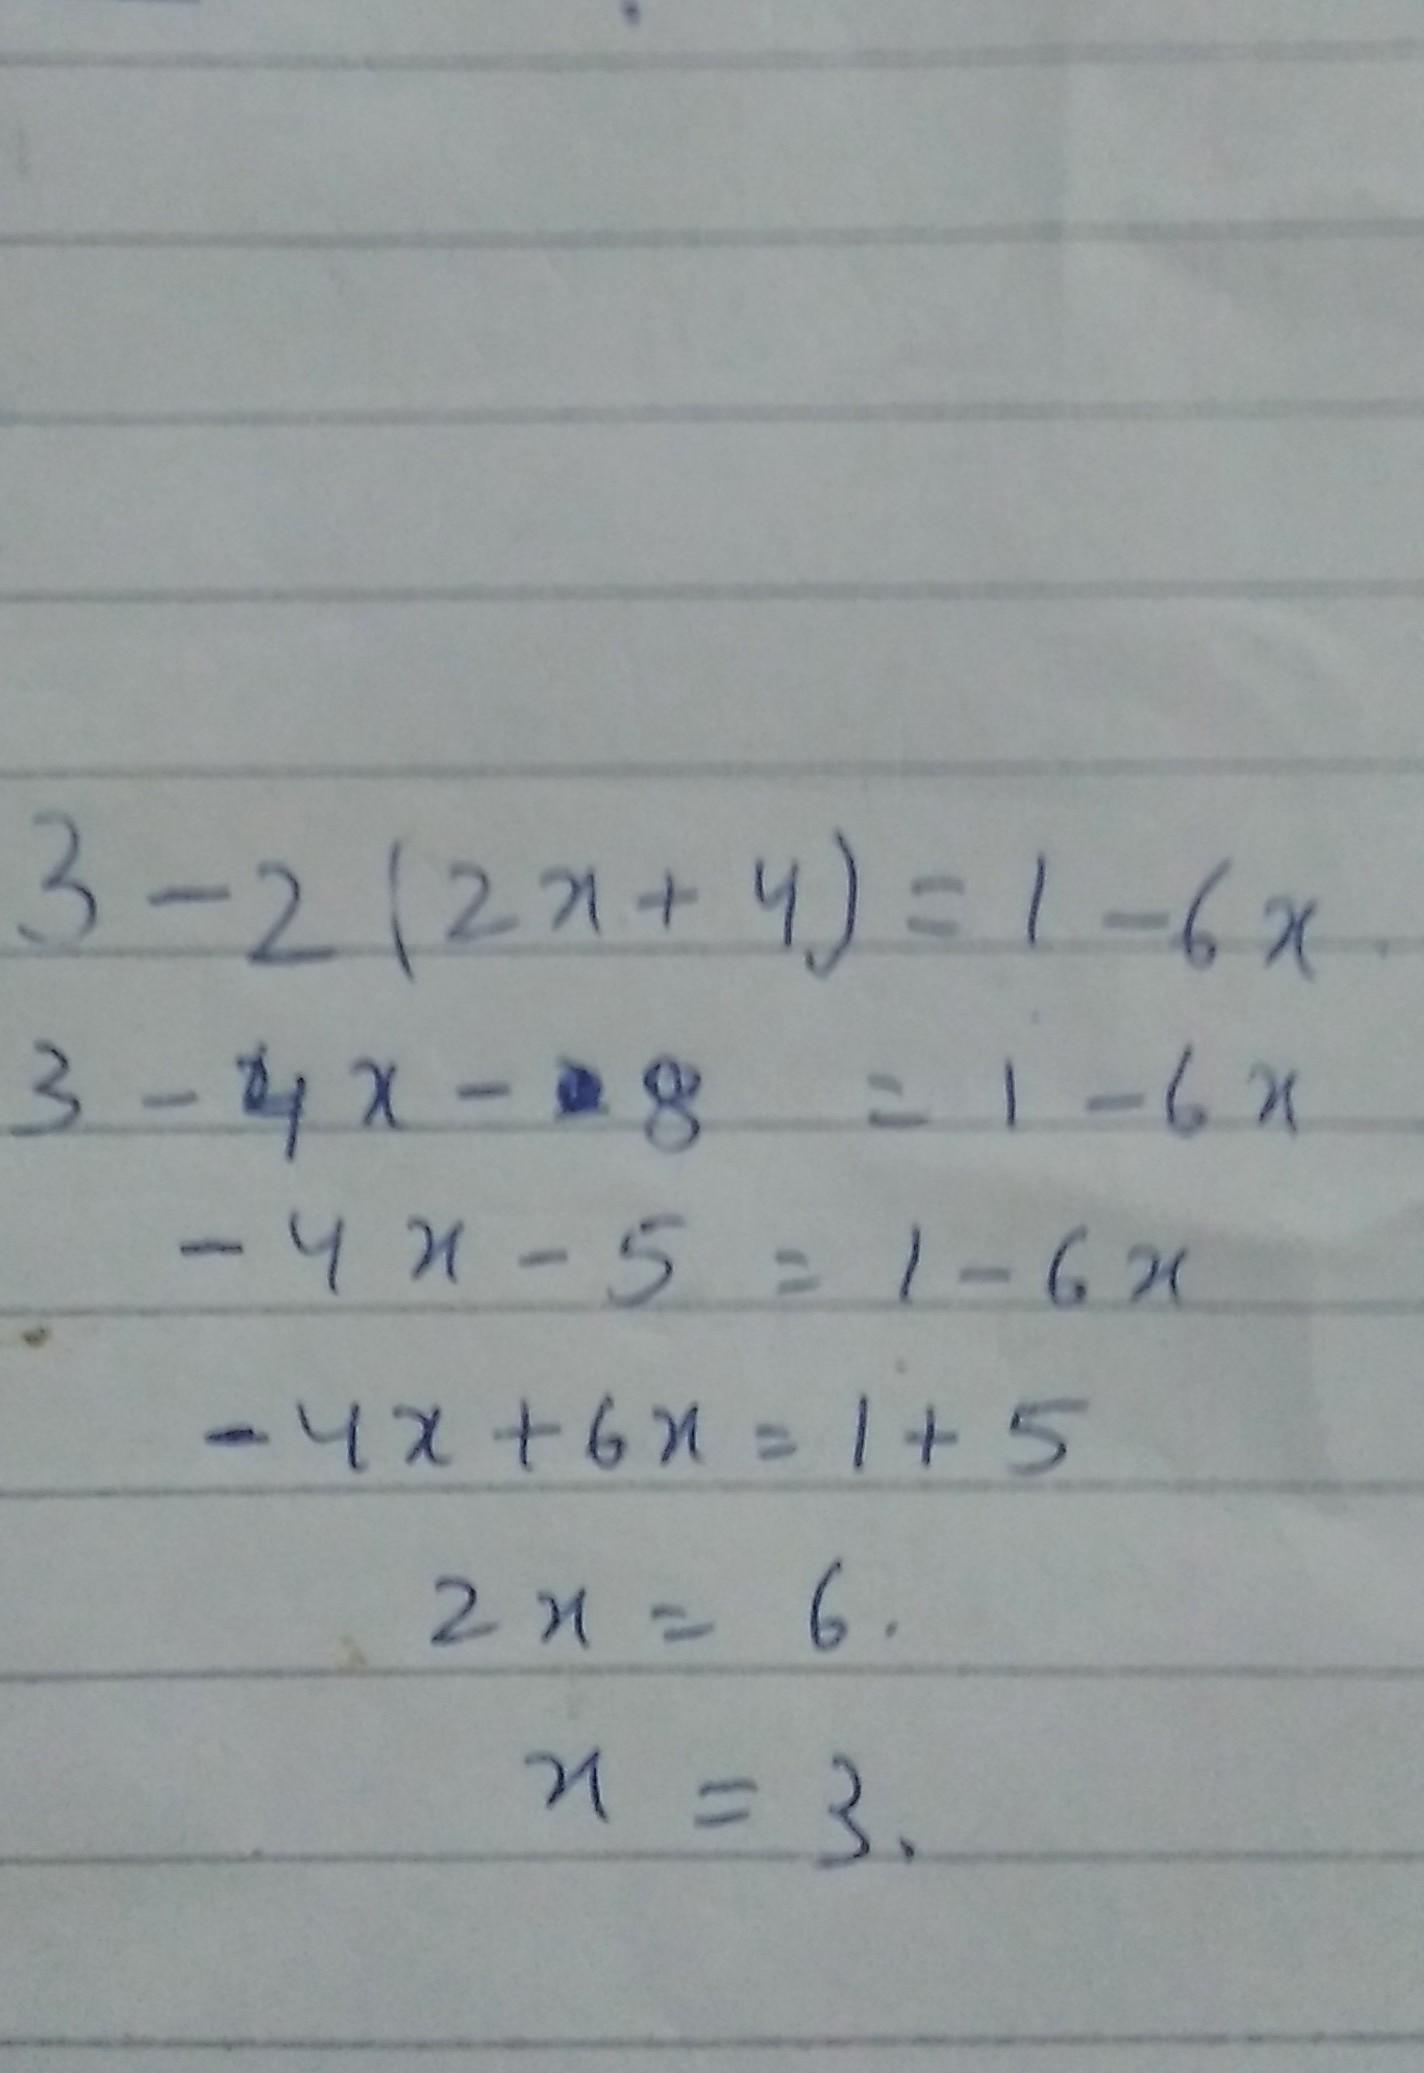 3 - 2 (2x + 4) = 1 - 6x
3 - 4x - 8 = 1 - 6x
- 4x - 5 = 1 - 6x
- 4x + 6x = 1 + 5
2x = 6.
x = 3.